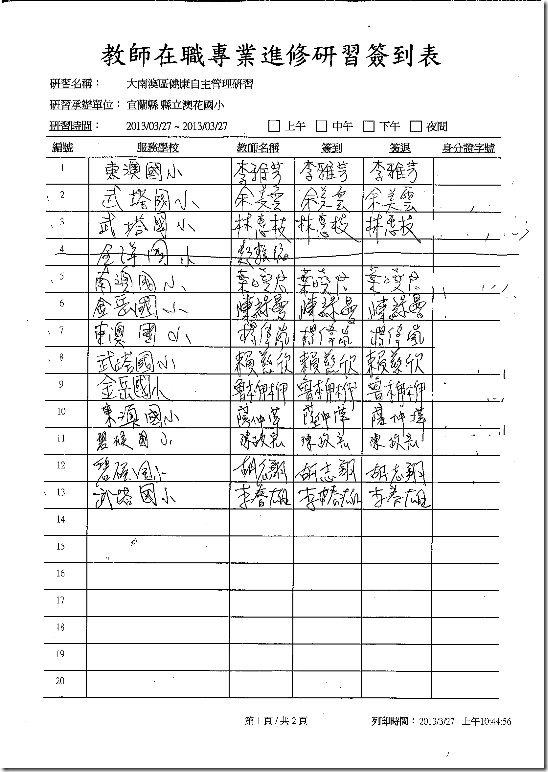 教師在職專業進修研習簽到表
研習名稱： 大南澳區健康自主管理研習
研習承辦單位： 宜蘭縣 縣立澳花國小
研習時間： 2013/03/27 ~ 2013/03/27 □ 上午 □ 中午 □ 下午 □ 夜間
編號 服務學校 教師名稱 簽到 簽退 身分證字號
1 東澳國小 李雅芳 李雅芳 李雅芳
2 武塔國小 余美雲 余美雲 余美雲
3 武塔國小 林惠枝 林惠枝 林惠枝
4 金洋國小
5 南澳國小
6 金岳國小
7 東澳國小 楊偉嵐 楊偉嵐 楊偉嵐
8 武塔國小 賴慈欣 賴慈欣 賴慈欣
9 金岳國小 曾柳柳 曾柳柳 曾柳柳
10 東澳國小
11 碧候國小 陳政宏 陳政宏 陳政宏
12 碧候國小 胡志翔 胡志翔 胡志翔
13 武塔國小 李春雄 李春雄 李春雄
14
15
16
17
18
19
20
第 1 頁 / 共 2 頁 列印時間： 2013/3/27 上午10:44:56